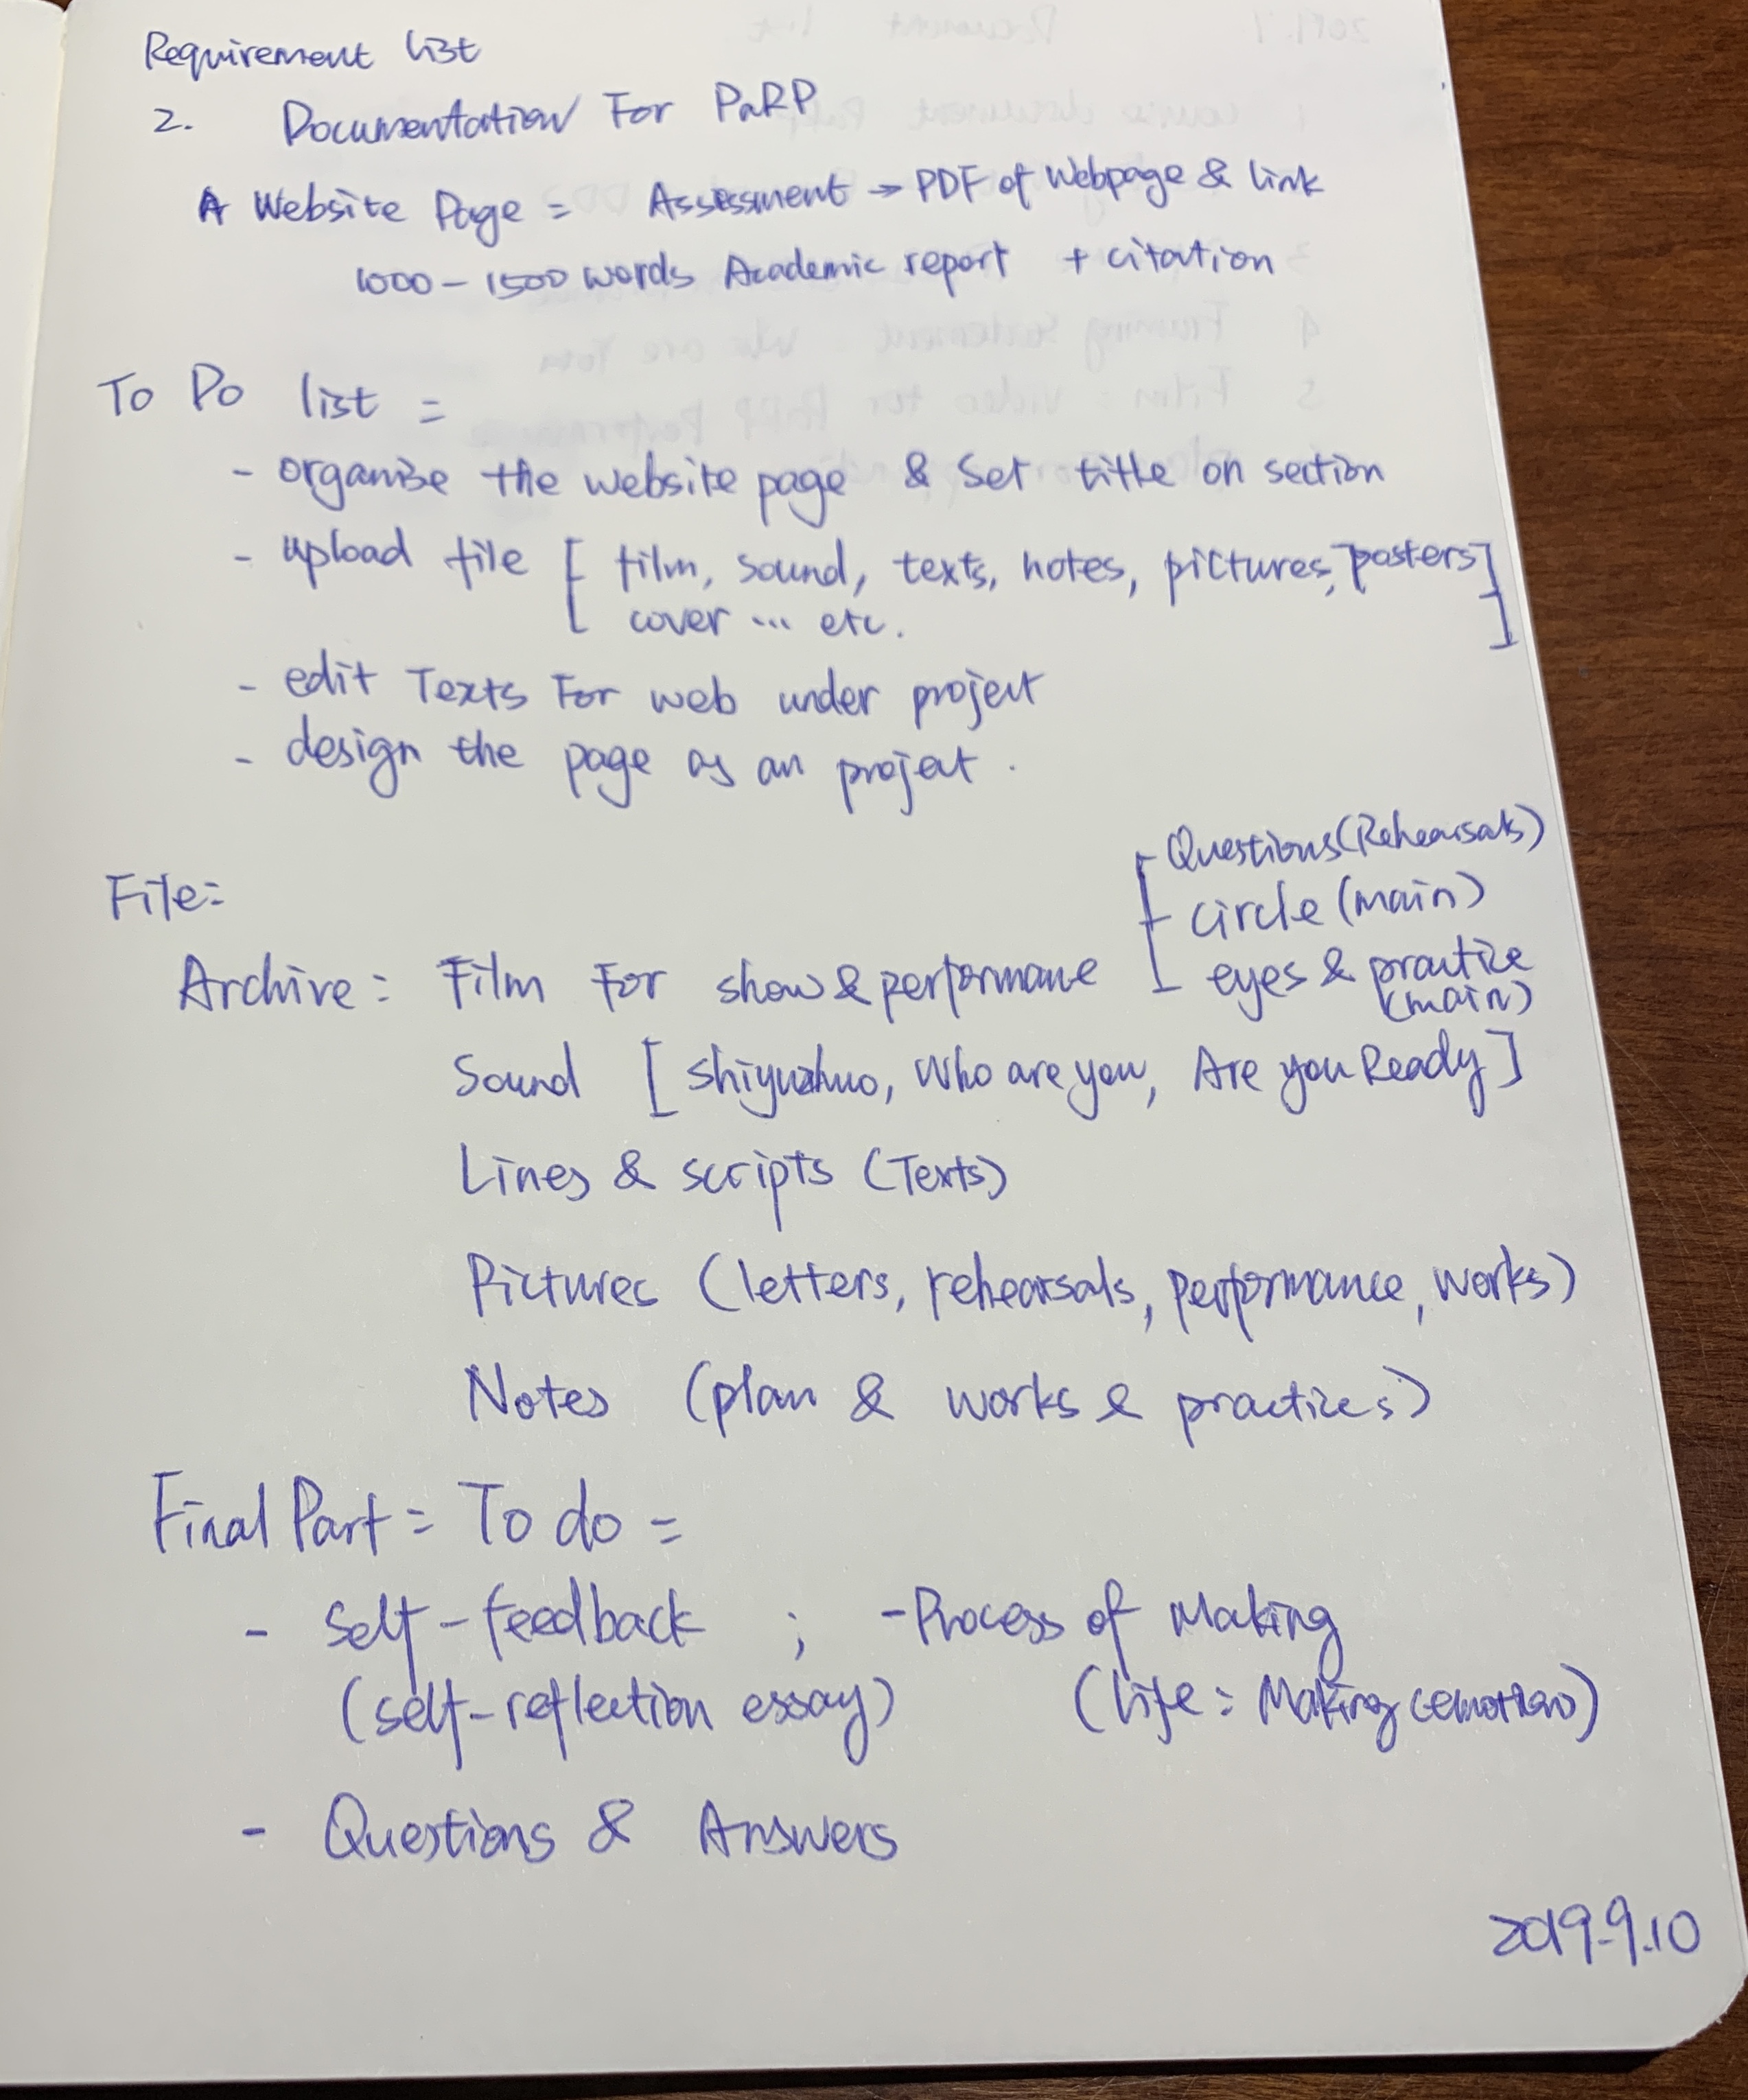 Requirement list
2. Documentation For PaRP
A Website Page = Assessment → PDF of Webpage & link
1000 - 1500 words Academic report + citation
To Do list =
- organise the website page & Set title on section
- upload file [ film, sound, texts, notes, pictures, posters]
[ cover ... etc. ]
- edit Texts For web under project
- design the page as an project.
File:
Questions (Rehearsals)
circle (main)
Archive: Film For show & performance eyes & practice
(main)
Sound [ shiyuzhuo, Who are you, Are you Ready ]
Lines & scripts (Texts)
Pictures (letters, rehearsals, performance, works)
Notes (plan & works & practices)
Final Part = To do =
- Self-feedback ; - Process of Making
(self-reflection essay) (life = Making (emotion)
- Questions & Answers
2019.9.10